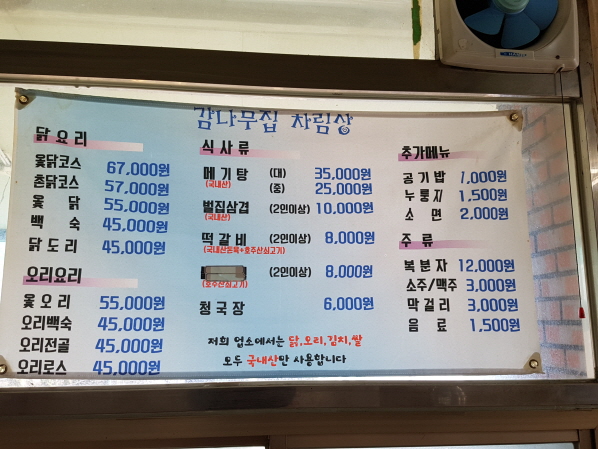 감나무집 차림상
닭요리
옻닭코스 67,000원
촌닭코스 57,000원
옻닭 55,000원
백숙 45,000원
닭도리 45,000원
오리요리
옻오리 55,000원
오리백숙 45,000원
오리전골 45,000원
오리로스 45,000원
식사류
메기탕 (대) 35,000원
(국내산) (중) 25,000원
벌집삼겹 (2인이상) 10,000원
(국내산)
떡갈비 (2인이상) 8,000원
(국내산돈육+호주산쇠고기)
(2인이상) 8,000원
(호주산쇠고기)
청국장 6,000원
저희 업소에서는 닭,오리,김치,쌀
모두 국내산만 사용합니다
추가메뉴
공기밥 1,000원
누룽지 1,500원
소면 2,000원
주류
복분자 12,000원
소주/맥주 3,000원
막걸리 3,000원
음료 1,500원